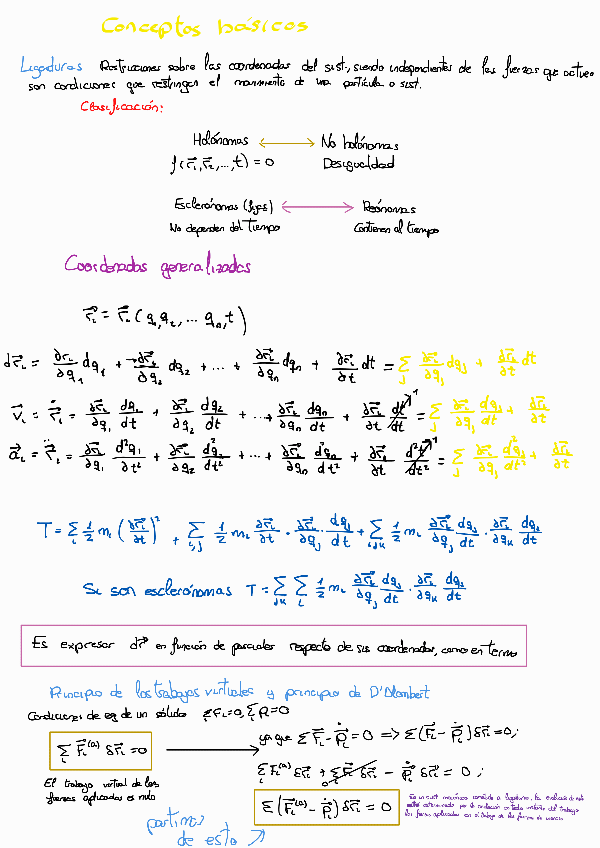 Conceptos básicos
Ligaduras Restricciones sobre las coordenadas del sist., siendo independientes de las fuerzas que actúen
son condiciones que restringen el movimiento de una partícula o sist.
Clasificación:
Holónomas ⟷ No holónomas
f(r⃗₁, r⃗₂, ..., t) = 0 Desigualdad
Esclerónomas (fijas) ⟷ Reónomas
No dependen del tiempo Contienen al tiempo
Coordenadas generalizadas
r⃗ᵢ = r⃗ᵢ(q₁, q₂, ... qₙ, t)
dr⃗ᵢ = ∂r⃗ᵢ/∂q₁ dq₁ + ∂r⃗ᵢ/∂q₂ dq₂ + ... + ∂r⃗ᵢ/∂qₙ dqₙ + ∂r⃗ᵢ/∂t dt = Σⱼ ∂r⃗ᵢ/∂qⱼ dqⱼ + ∂r⃗ᵢ/∂t dt
v⃗ᵢ = ṙ⃗ᵢ = ∂r⃗ᵢ/∂q₁ dq₁/dt + ∂r⃗ᵢ/∂q₂ dq₂/dt + ... + ∂r⃗ᵢ/∂qₙ dqₙ/dt + ∂r⃗ᵢ/∂t dt/dt = Σⱼ ∂r⃗ᵢ/∂qⱼ dqⱼ/dt + ∂r⃗ᵢ/∂t
a⃗ᵢ = r̈⃗ᵢ = ∂r⃗ᵢ/∂q₁ d²q₁/dt² + ∂r⃗ᵢ/∂q₂ d²q₂/dt² + ... + ∂r⃗ᵢ/∂qₙ d²qₙ/dt² + ∂r⃗ᵢ/∂t d²t/dt² = Σⱼ ∂r⃗ᵢ/∂qⱼ d²qⱼ/dt² + ∂r⃗ᵢ/∂t
T = Σᵢ ½ mᵢ (∂r⃗ᵢ/∂t)² + Σᵢ,ⱼ ½ mᵢ ∂r⃗ᵢ/∂t · ∂r⃗ᵢ/∂qⱼ dqⱼ/dt + Σᵢⱼₖ ½ mᵢ ∂r⃗ᵢ/∂qⱼ dqⱼ/dt · ∂r⃗ᵢ/∂qₖ dqₖ/dt
Si son esclerónomas T = Σⱼₖ Σᵢ ½ mᵢ ∂r⃗ᵢ/∂qⱼ dqⱼ/dt · ∂r⃗ᵢ/∂qₖ dqₖ/dt
Es expresar dr⃗ en función de parciales respecto de sus coordenadas, como en termo
Principio de los trabajos virtuales y principio de D'Alambert
Condiciones de eq de un sólido ΣFᵢ=0, ΣR=0
Σᵢ F⃗ᵢ⁽ᵃ⁾ δr⃗ᵢ = 0 ⟶ ya que ΣF⃗ᵢ - ṗ⃗ᵢ = 0 => Σ(F⃗ᵢ - ṗ⃗ᵢ) δr⃗ᵢ = 0;
ΣFᵢ⁽ᵃ⁾ δr⃗ᵢ + ΣR⃗ᵢ δr⃗ᵢ - ṗ⃗ᵢ δr⃗ᵢ = 0;
El trabajo virtual de las
fuerzas aplicadas es nulo
Σ(F⃗ᵢ⁽ᵃ⁾ - ṗ⃗ᵢ) δr⃗ᵢ = 0
partimos
de esto